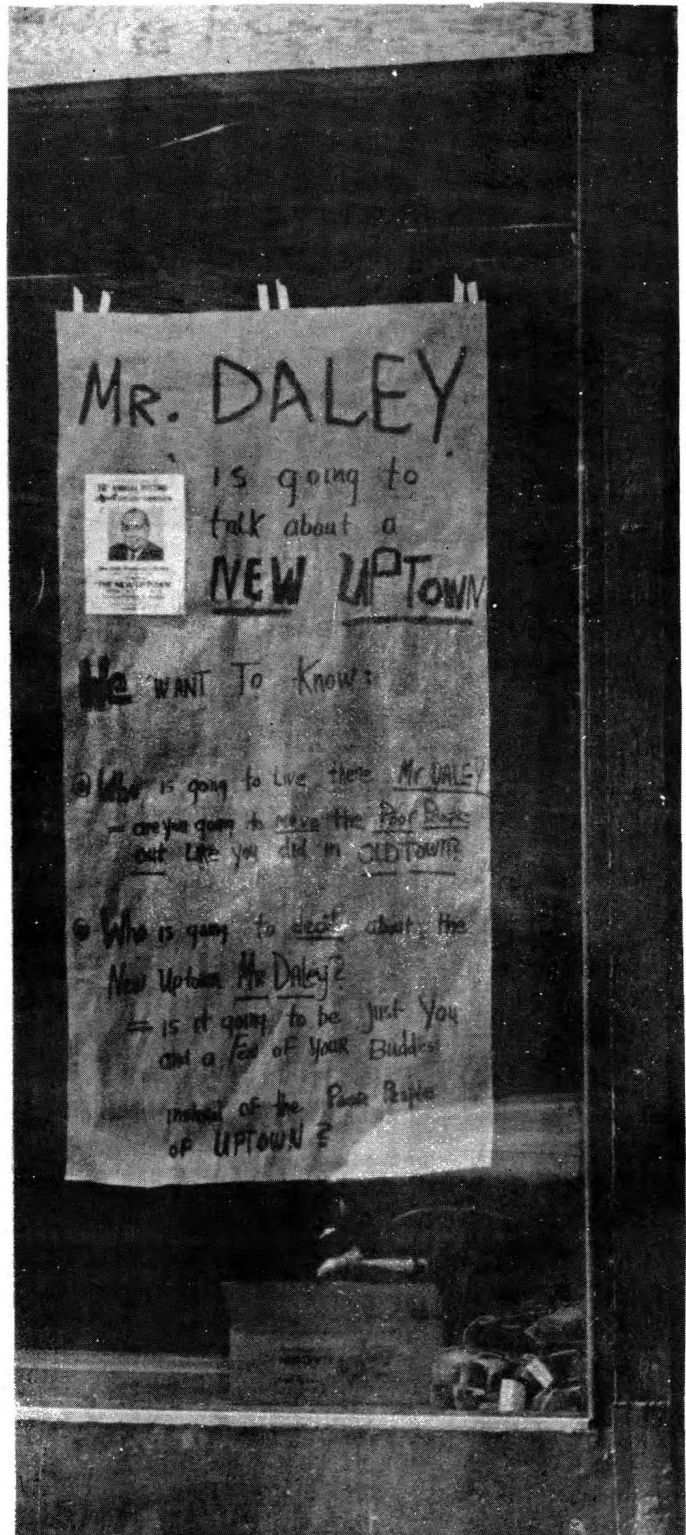 MR. DALEY
is going to
talk about a
NEW UPTOWN
THE NEW UPTOWN
We WANT To Know:
Who is going to Live there Mr DALEY
- are you going to move the Poor People
out Like you did in OLD TOWN?
Who is going to about the
New Uptown Mr Daley?
= is it going to be Just You
and a Few of Your Buddes
instead of the Poor People
of UPTOWN?